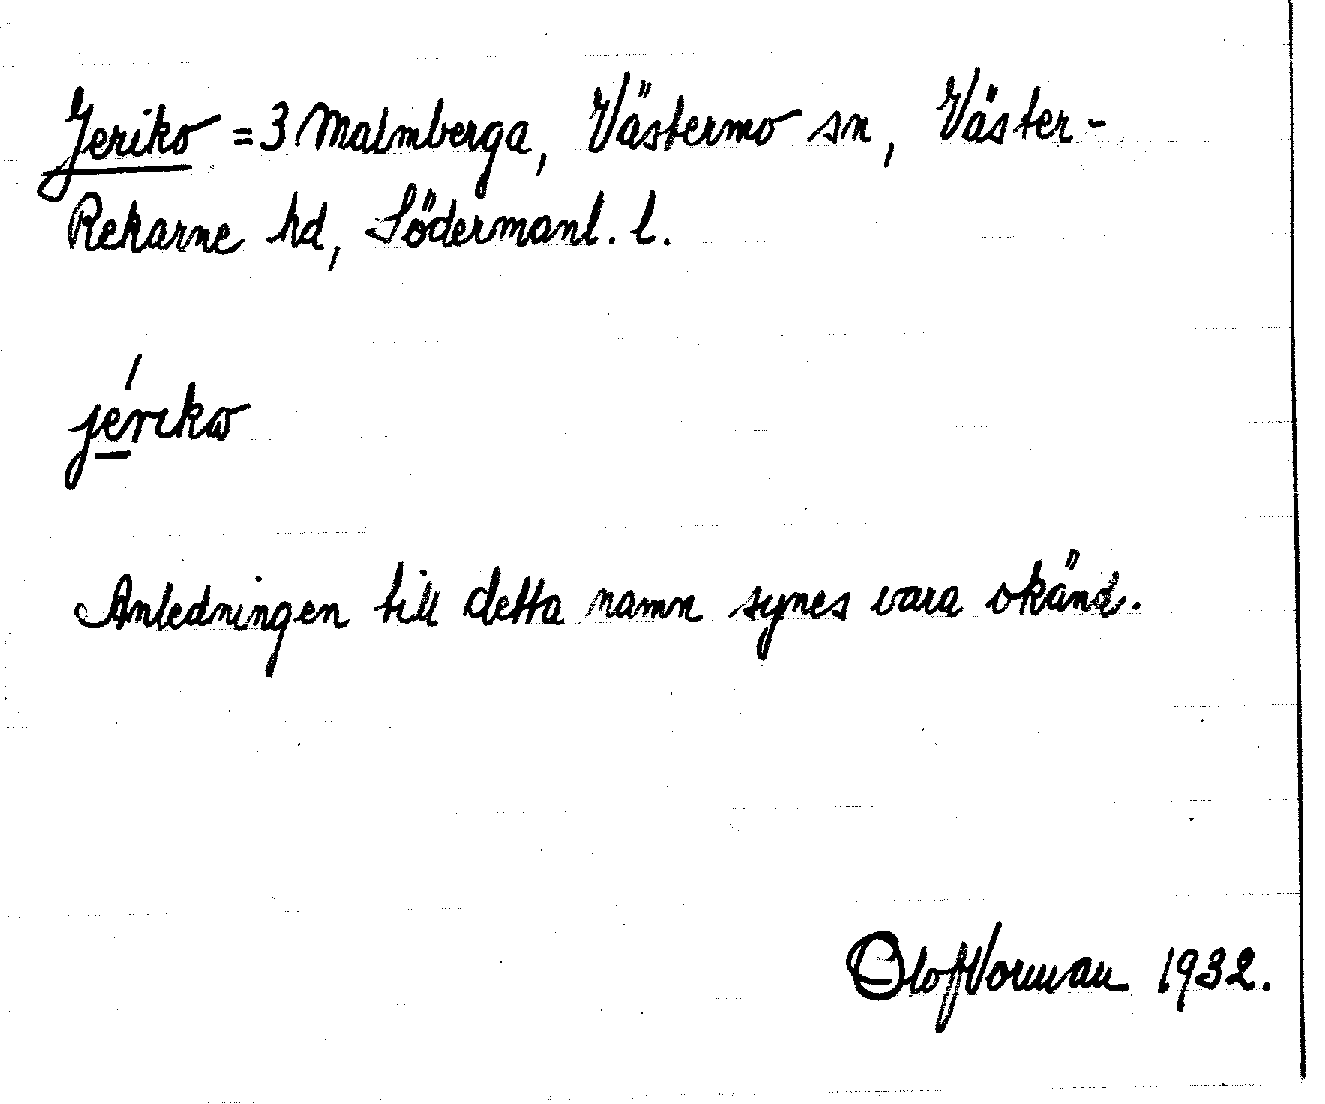 Jeriko = 3 Malmberga, Västermo sn, Väster-
Rekarne hd, Södermanl. l.
jérıkω
Anledningen till detta namn synes vara okänd.
Olof Norman 1932.